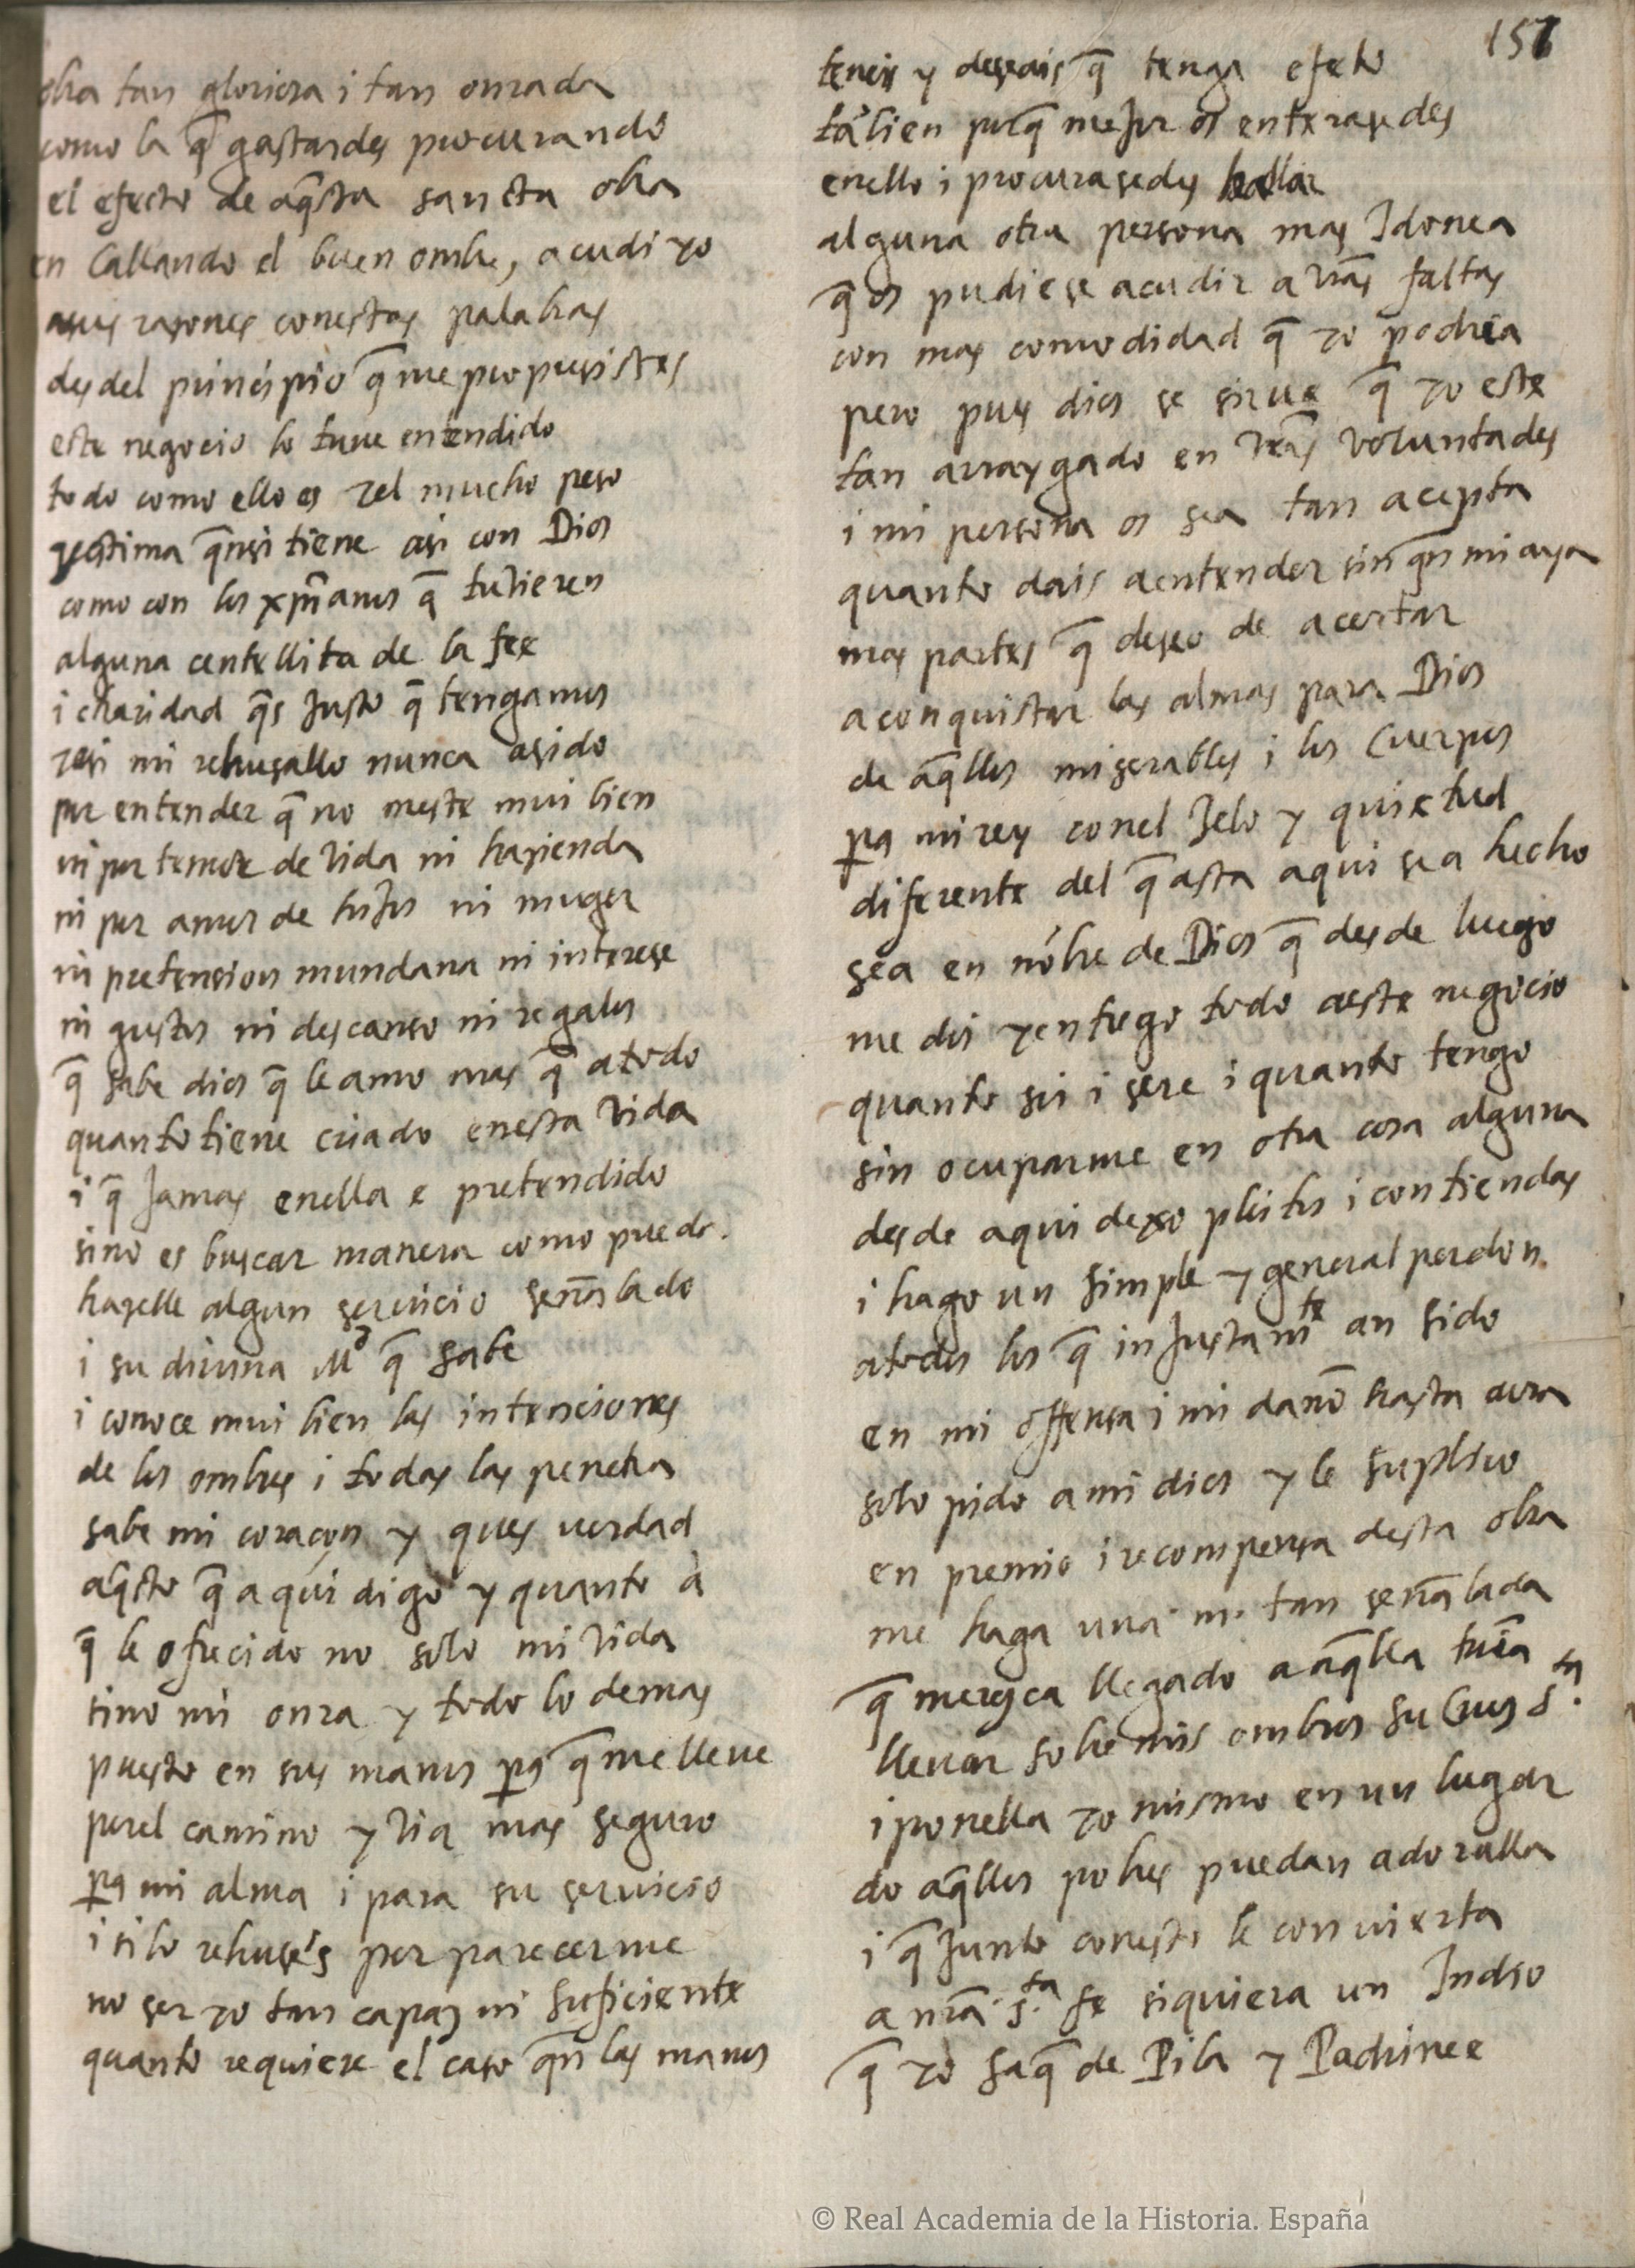 obra tan gloriosa i tan onrada
como la q̄ gastardes procurando
el efecto de aq̄sta sancta obra
en Callando el buen ombre, acudi yo
a sus rasones conestas palabras
desdel principio q̄ me propusistes
este negocio lo tuue entendido
todo como ello es yel mucho peso
yestima q̄nsi tiene asi con Dios
como con los xp̄ianos q̄ tuvieren
alguna centellita de la fee
i charidad q̄s Justo q̄ tengamos
yasi mi rehusallo nunca asido
por entender q̄ no meste mui bien
ni por temor de vida ni hazienda
ni por amor de hiJos ni muger
ni pretension mundana ni interese
ni gustos ni descanso ni regalos
q̄ sabe dios q̄ le amo mas q̄ a todo
quanto tiene criado enesta vida
i q̄ Jamas enella e pretendido
sino es buscar manera como puedo
hazelle algun seruicio señalado
i su diuina Mᵈ q̄ sabe
i conoce mui bien las intenciones
de los ombres i todas las penetra
sabe mi coraçon y ques uerdad
aq̄sto q̄ aqui digo y quanto à
q̄ le ofrecido no solo mi vida
sino mi onra y todo lo demas
puesto en sus manos pᵃ q̄ me lleue
porel camino y via mas seguro
pᵃ mi alma i para su seruicio
i si lo rehuse's por parecerme
no ser yo tan capaz ni suficiente
quanto requiere el caso q̄n las manos
157
teneis y deseais q̄ tenga efeto
tābien porq̄ meJor os enterasedes
enello i procurasedes hallar
alguna otra persona mas Idonea
q̄ os pudiese acudir a vr̄as faltas
con mas comodidad q̄ yo podria
pero pues dios se sirue q̄ yo este
tan arraygado en vr̄as voluntades
i mi persona os sea tan acepta
quanto dais aentender sin q̄n mi aya
mas partes q̄ deseo de acertar
a conquistar las almas para Dios
de aq̄llos miserables i los Cuerpos
pᵃ mi rey conel Zelo y quietud
diferente del q̄ asta aqui se a hecho
sea en nōbre de Dios q̄ desde luego
me doi yentrego todo aeste negocio
quanto soi i sere i quanto tengo
sin ocuparme en otra cosa alguna
desde aqui dexo pleitos i contiendas
i hago un simple y general perdon
atodos los q̄ inJustamᵗᵉ an sido
en mi offensa i mi daño hasta aora
solo pido a mi dios y le suplico
en premio i recompensa desta obra
me haga una m. tan señalada
q̄ meresca llegado a aq̄lla trr̄a
lleuar sobre mis ombros su Crus s.ᵗᵃ
i ponella yo mismo en un lugar
do aq̄llos pobres puedan adoralla
i q̄ Junto conesto le conuierta
a nr̄a s.ᵗᵃ fe siquiera un Indio
q̄ yo saq̄ de Pila y Padrinee
© Real Academia de la Historia. España